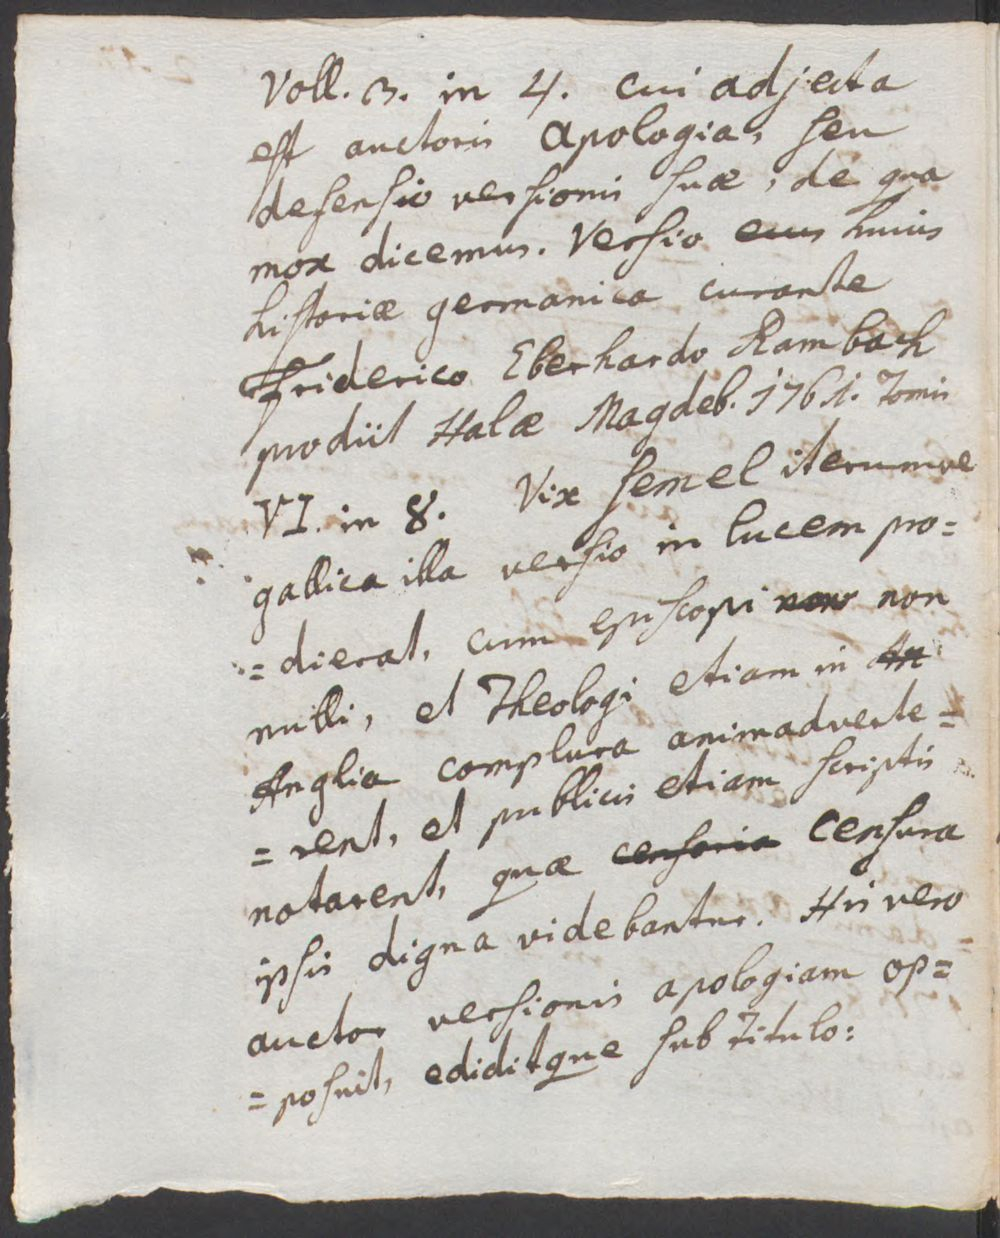 Voll. 3. in 4. cui adjecta
est auctoris Apologia, seu
defensio versionis suæ, de qua
mox dicemus. Versio eius huius
historiæ germanica curante
Friderico Eberhardo Rambach
prodiit Halæ Magdeb. 1761. Tomis
VI. in 8. Vix semel iterumve
gallica illa versio in lucem pro=
=dierat, cum episcopi non non
nulli, et Theologi etiam in An
Anglia complura animadverte=
=rent, et publicis etiam scriptis
notarent, quæ censoria censura
ipsis digna videbantur. His vero
auctor versionis apologiam op=
=posuit, ediditque sub Titulo: